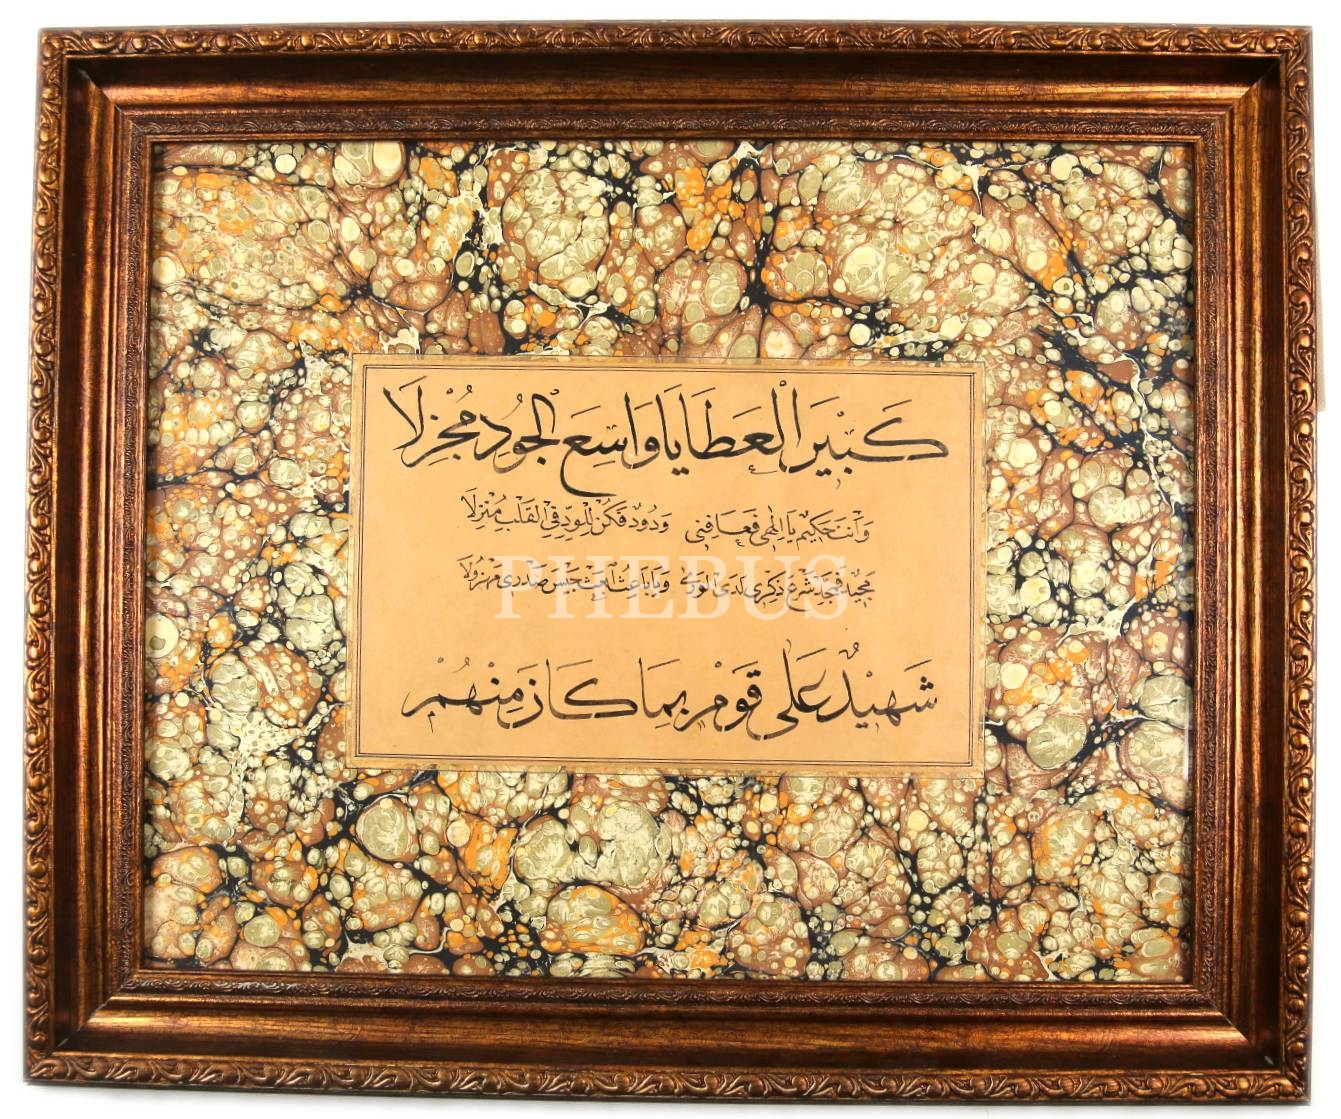 كَبِيرَ الْعَطَايَا وَاسِعَ الْجُودِ مُجْزِلَا
وَأَنْتَ حَكِيمٌ يَا إِلٰهِي فَعَافِنِي وَدُودٌ فَكُنْ لِلْوِدِّ فِي الْقَلْبِ مُنْزِلَا
مَجِيدٌ فَمَجِّدْ شَرْعَ ذِكْرِي لَدَى الْوَرَى وَيَا بَاعِثُ ابْعَثْ جَيْشَ صَدْرِي مُهَرْوِلَا
PHEBUS
شَهِيدٌ عَلَى قَوْمٍ بِمَا كَانَ مِنْهُمْ